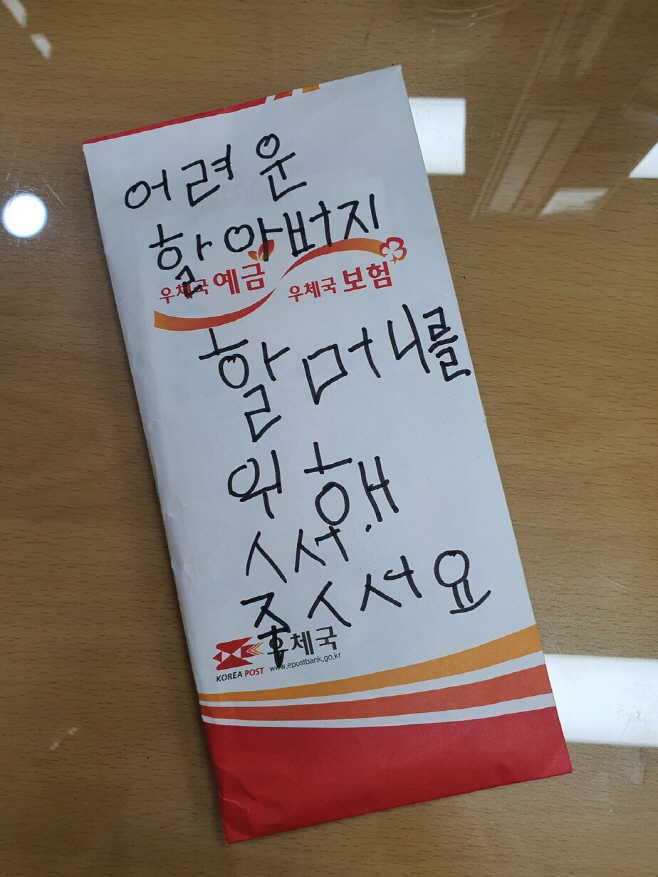 어려운
할아버지
우체국 예금 우체국 보험
할머니를
위해
써.
주시서요
우체국
KOREA POST www.epostbank.go.kr